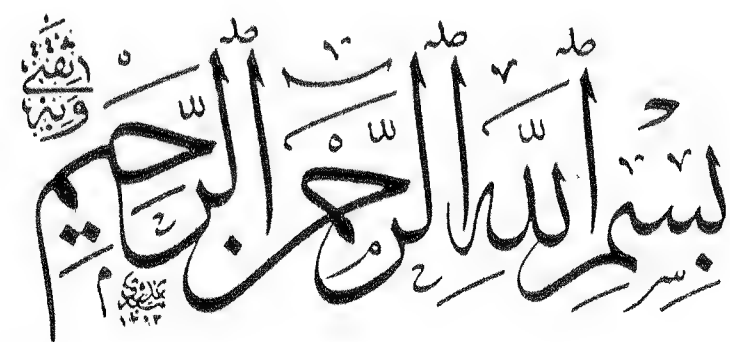 بِسْمِ اللّٰهِ الرَّحْمٰنِ الرَّحِيْمِ
وبه ثقتي